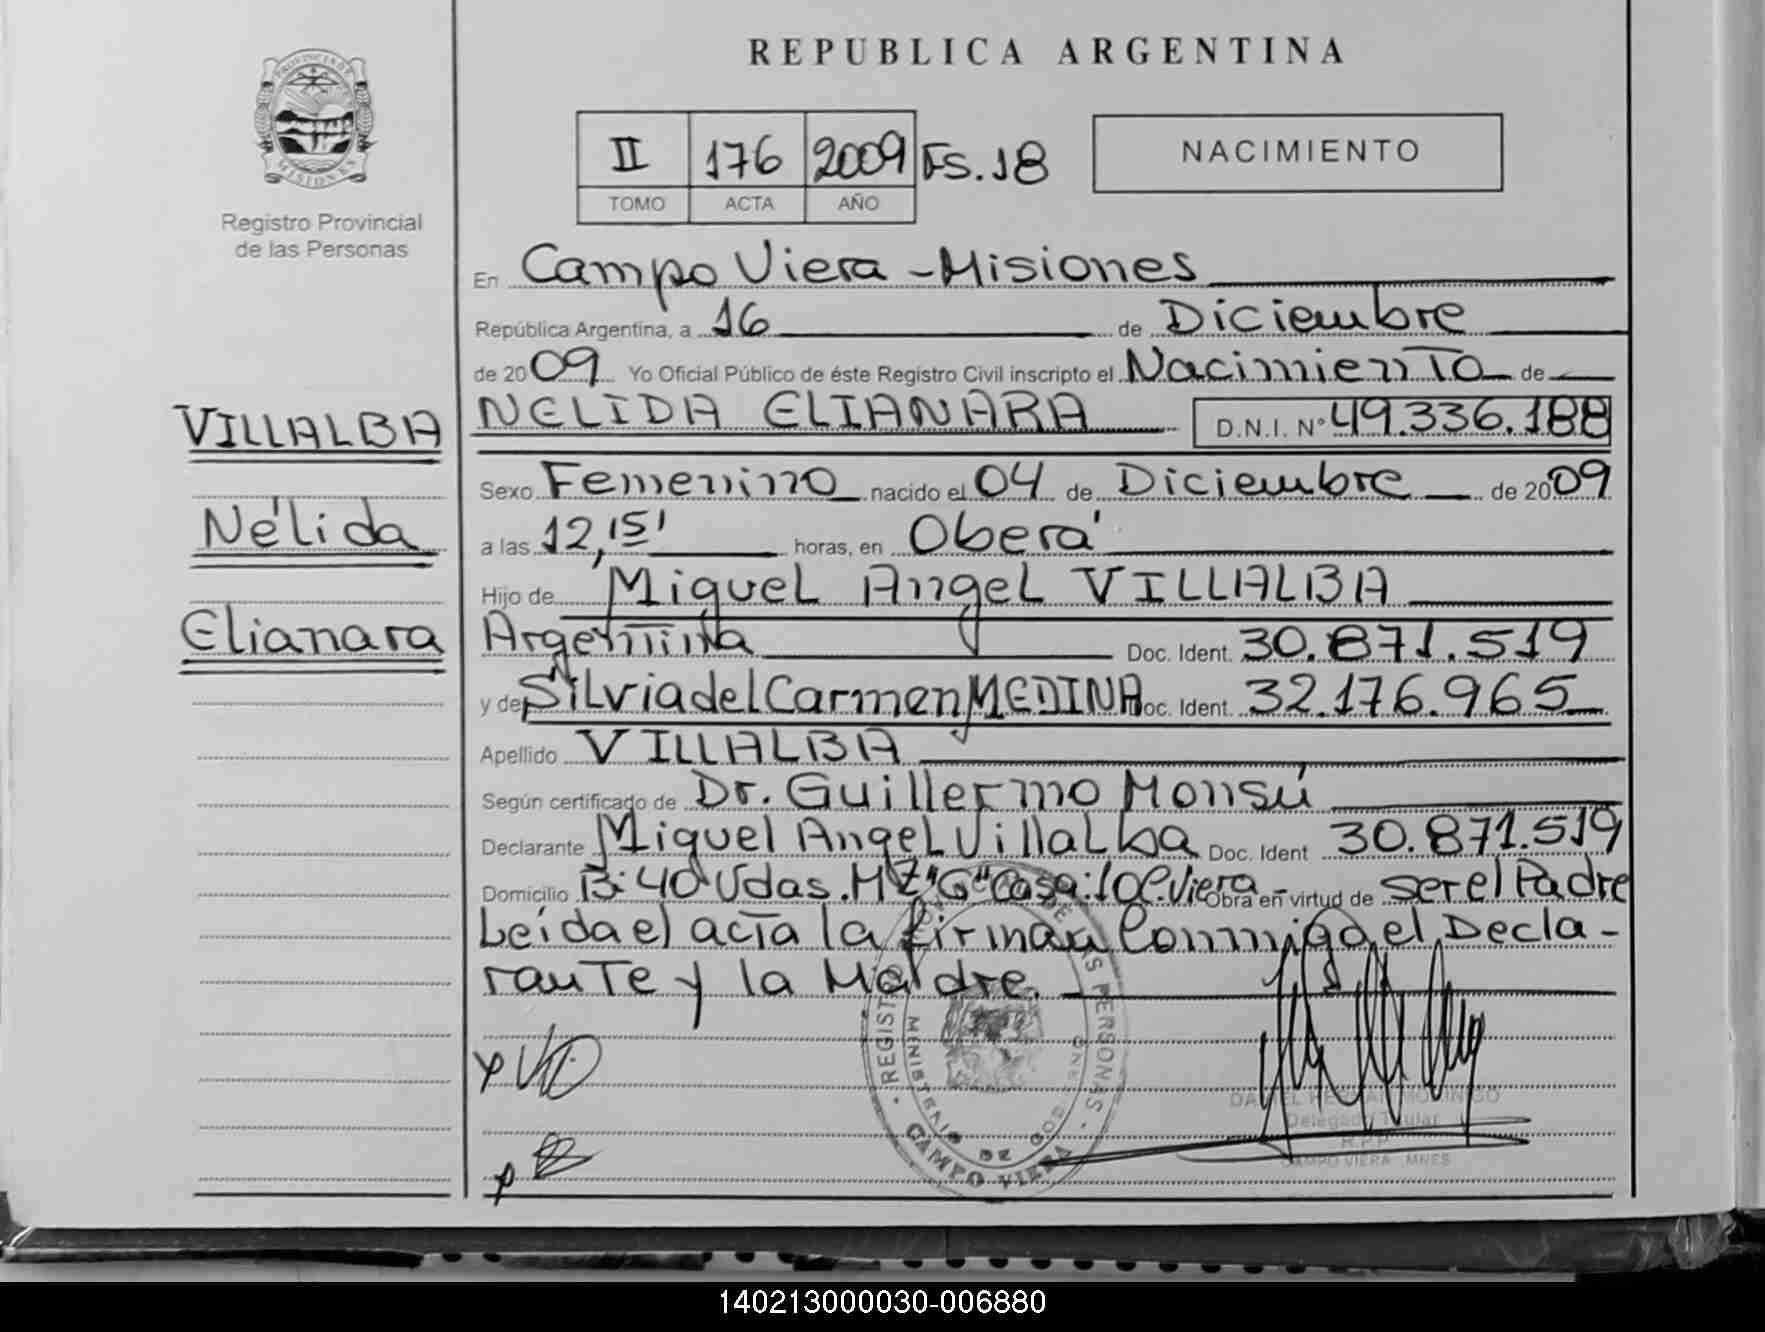 REPUBLICA ARGENTINA
PROVINCIA DE
MISIONES
Registro Provincial
de las Personas
II 176 2009 Fs.18
TOMO ACTA AÑO
NACIMIENTO
En Campo Viera - Misiones
República Argentina, a 16 de Diciembre
de 2009 Yo Oficial Público de éste Registro Civil inscripto el Nacimiento de
NELIDA ELIANARA D.N.I. N° 49.336.188
Sexo Femenino nacido el 04 de Diciembre de 2009
a las 12,15' horas, en Oberá
Hijo de Miguel Angel VILLALBA
Argentina Doc. Ident. 30.871.519
y de Silvia del Carmen MEDINA Doc. Ident. 32.176.965
Apellido VILLALBA
Según certificado de Dr. Guillermo Monsú
Declarante Miguel Angel Villalba Doc. Ident 30.871.519
Domicilio B: 40 Vdas. MZ "G" Casa: 10 C. Viera - Obra en virtud de ser el Padre
Leída el acta la firman Conmigo el Decla-
rante y la Madre.
VILLALBA
Nélida
Elianara
REGISTRO DE LAS PERSONAS
MINISTERIO DE GOBIERNO
CAMPO VIERA
Delegado Titular
R.P.P.
CAMPO VIERA MNES
140213000030-006880